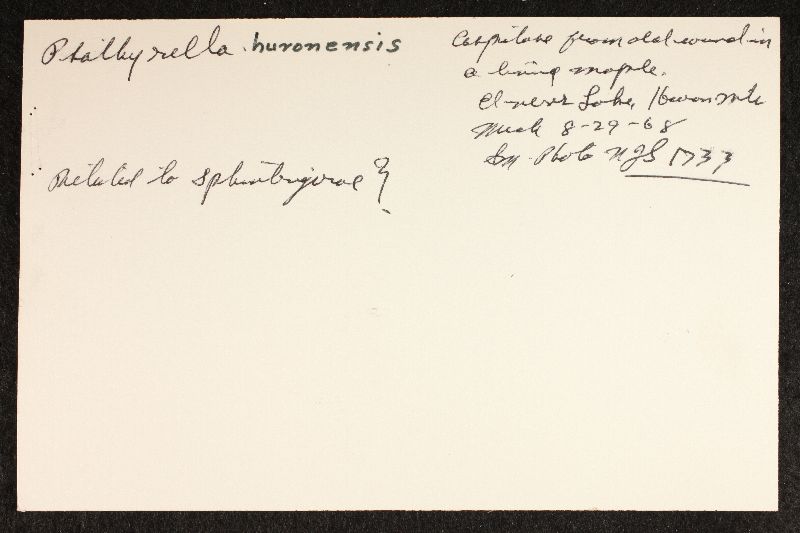 Psathyrella huronensis
Related to sphintrigerae ?
Cespitose from old wound in
a living maple.
Lake, Huron Mts
Mich 8-29-68
Photo NJS 1733